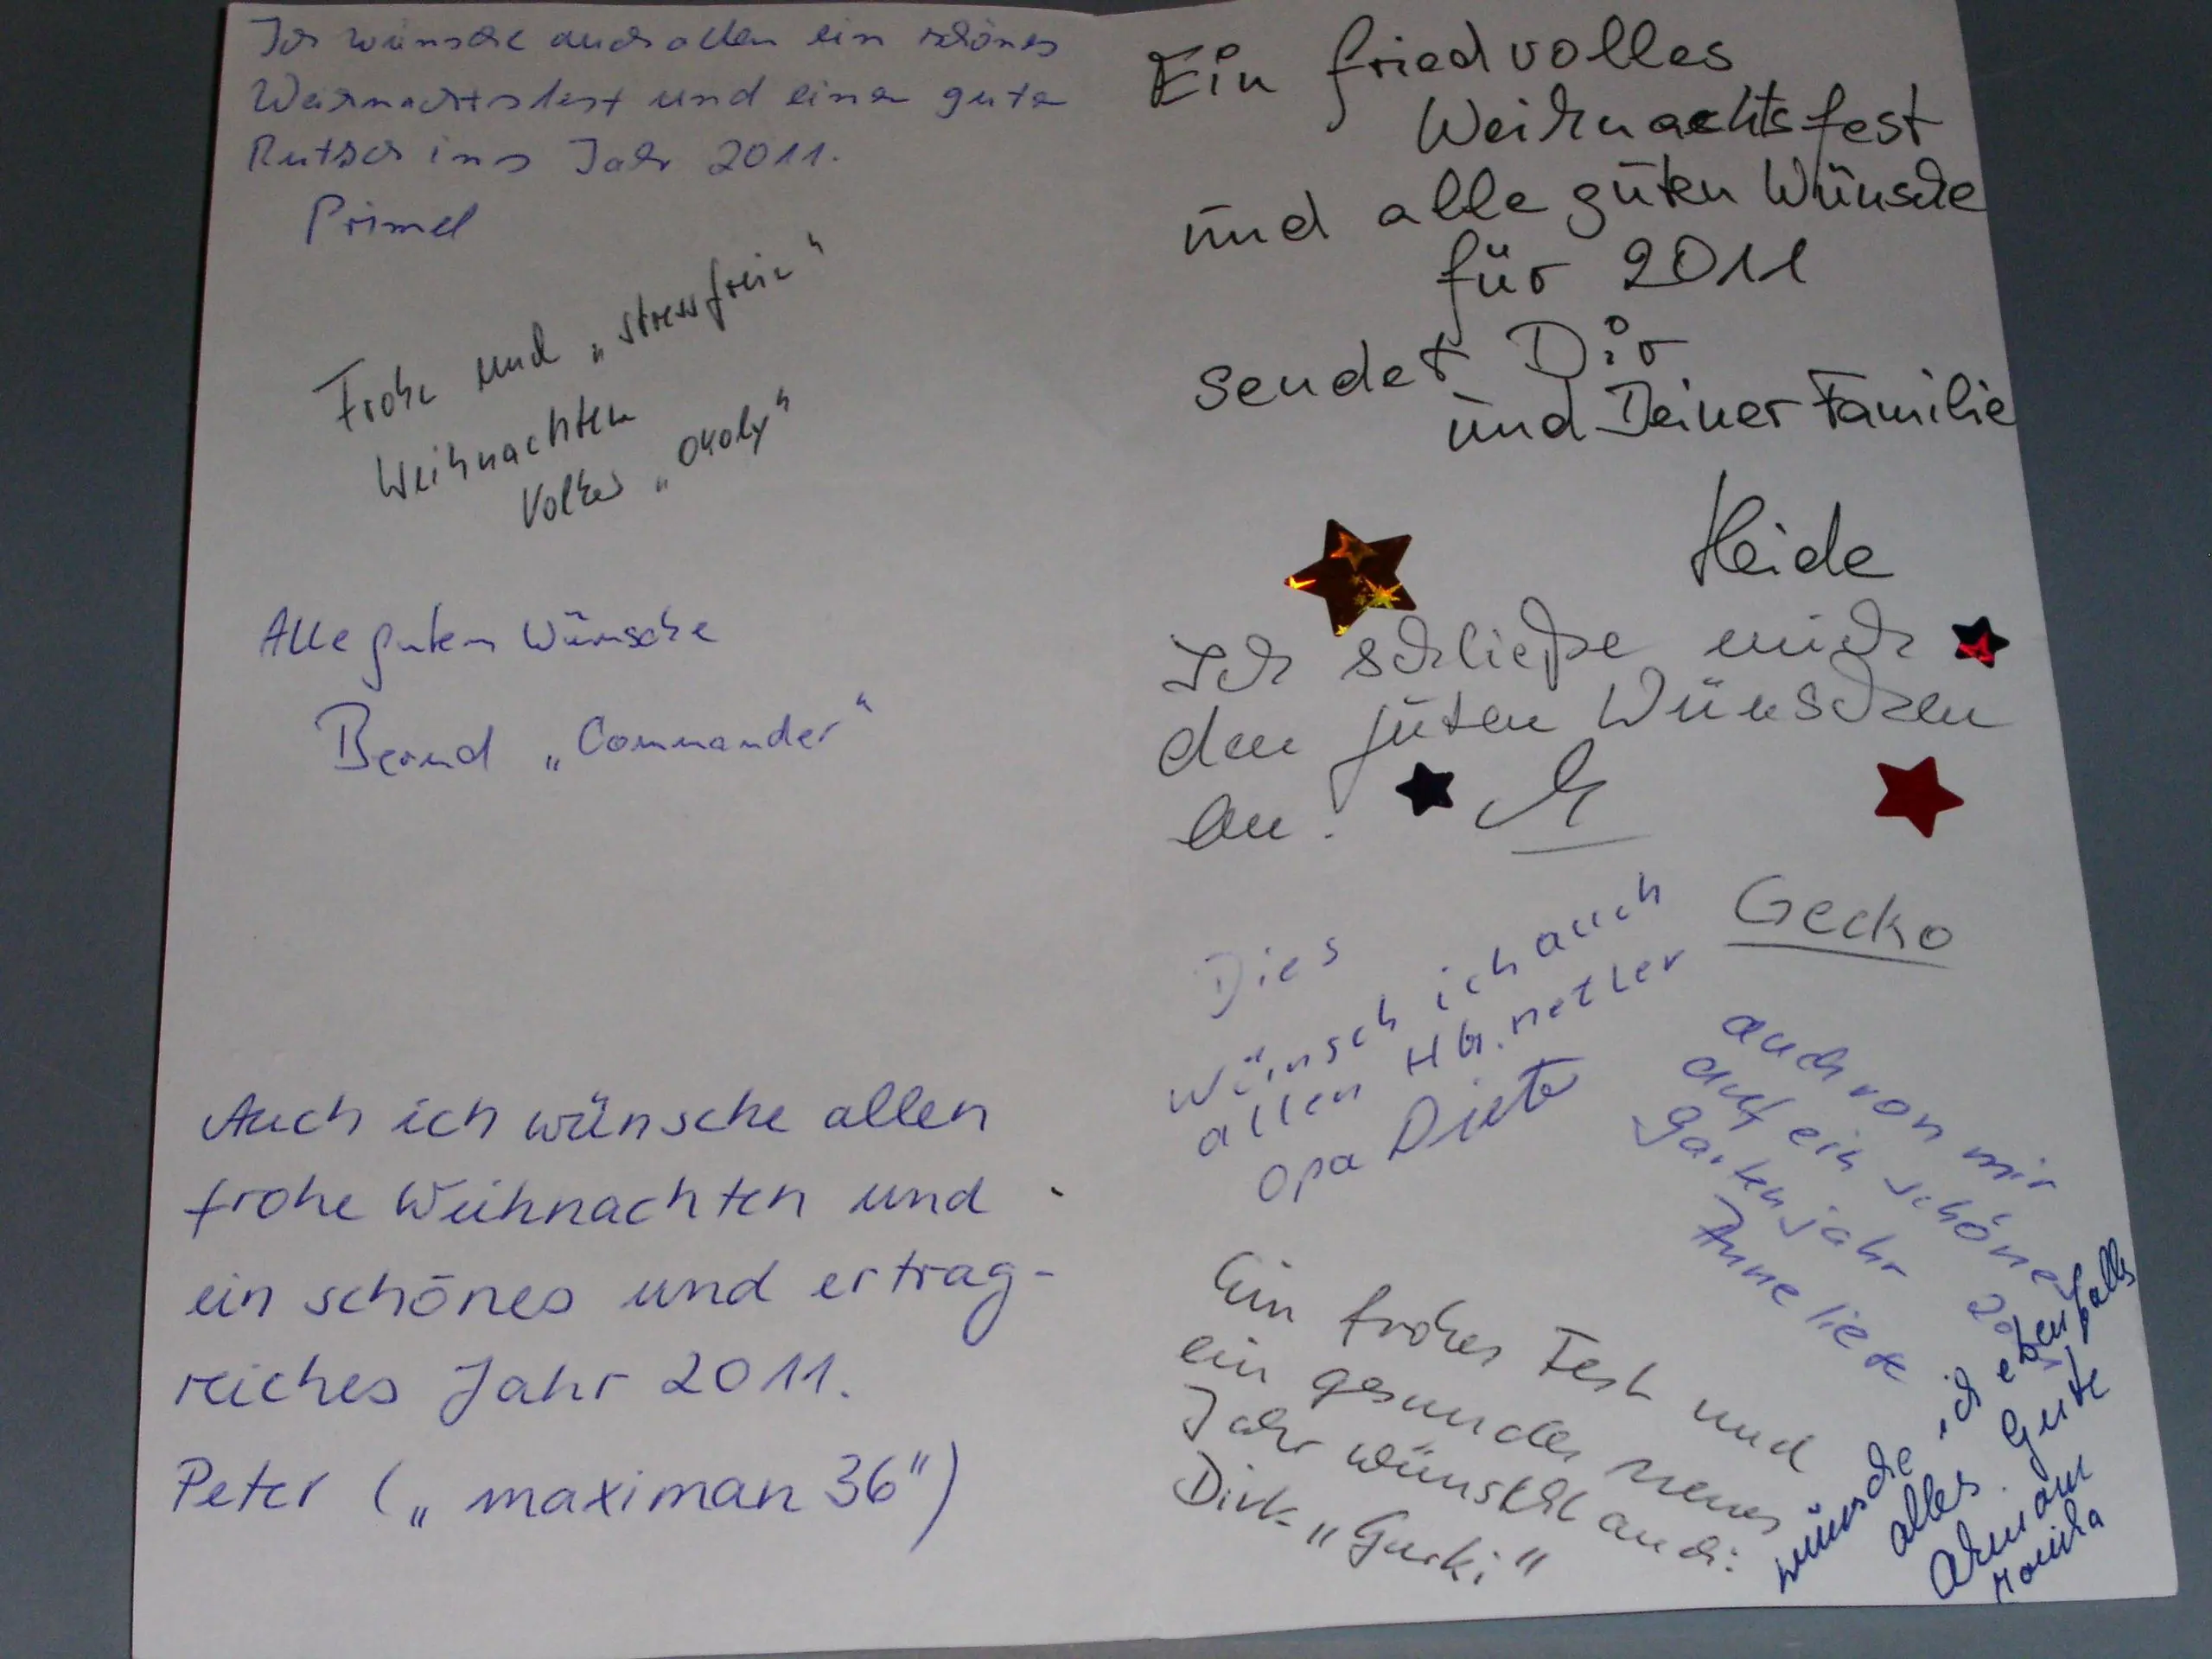 Ich wünsche auch allen ein schönes
Weihnachtsfest und einen guten
Rutsch ins Jahr 2011.
Primel
Frohe und „stressfreie“
Weihnachten
Volker
Alle guten Wünsche
Bernd „Commander“
Auch ich wünsche allen
frohe Weihnachten und
ein schönes und ertrag-
reiches Jahr 2011.
Peter („maximan 36“)
Ein friedvolles
Weihnachtsfest
und alle guten Wünsche
für 2011
sendet Dir
und Deiner Familie
Heide
Ich schließe mich
den guten Wünschen
an!
Gecko
Dies
wünsch ich auch
allen HG.netler
Opa Dieter
auch von mir
auf ein schönes
Gartenjahr 2011
Annelie
Ein frohes Fest und
ein gesundes neues
Jahr wünscht auch:
Dirk „Gurki“
wünsche ich ebenfalls
alles Gute